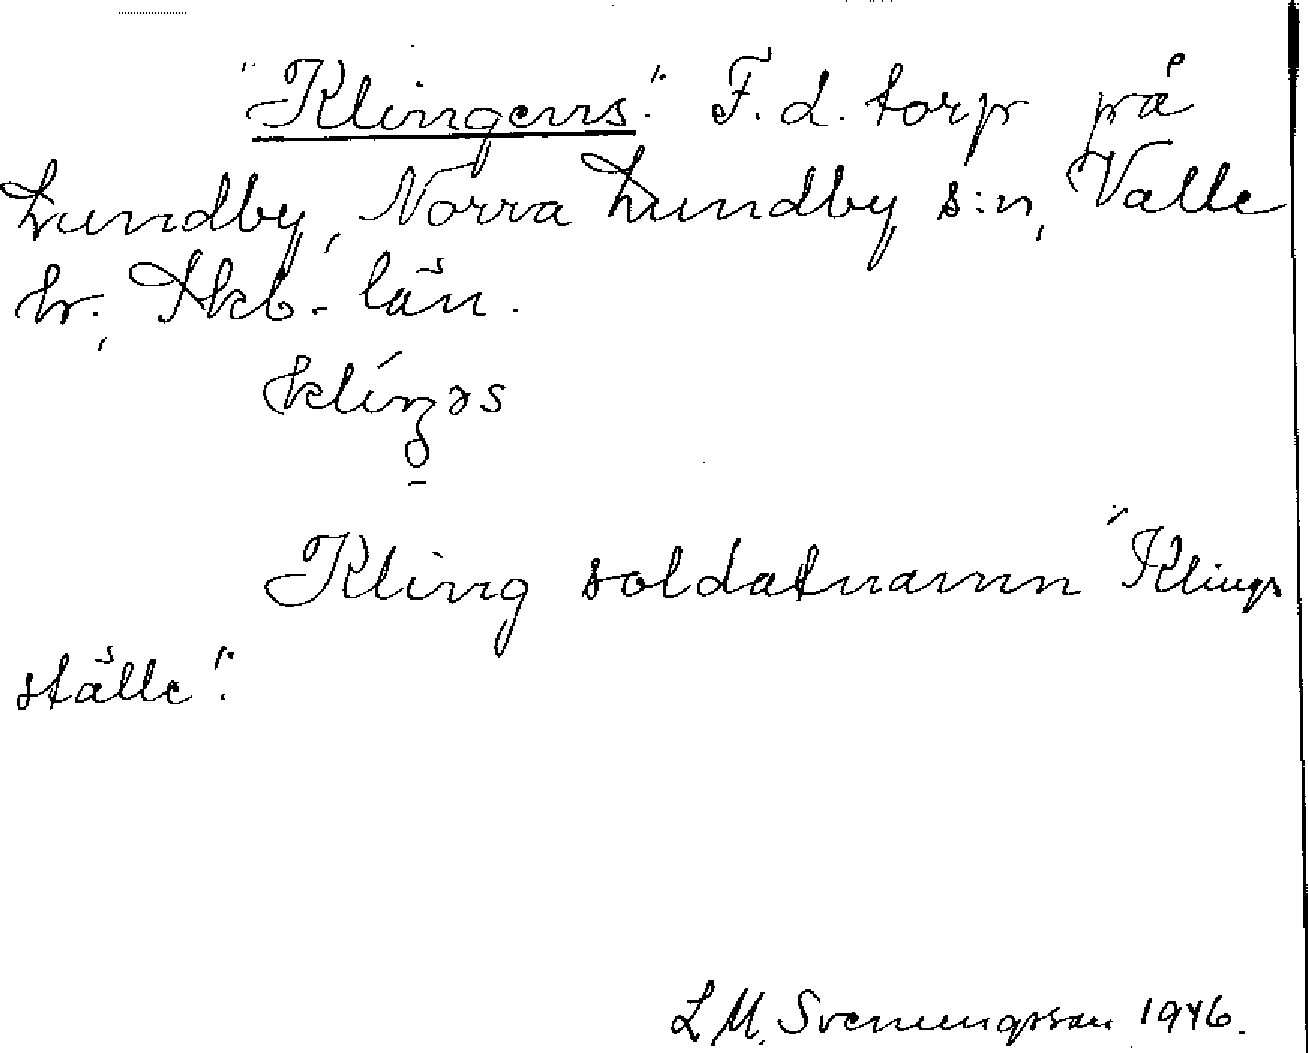 "Klingens". F. d. torp på
Lundby, Norra Lundby s:n, Valle
hr., Skb. län.
klíŋəs
Kling soldatnamn "Klings
ställe".
L M. Svenungsson 1946.